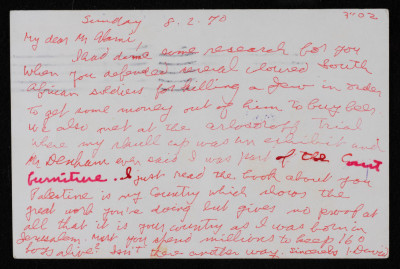 Sunday 8.2.70 7402
My dear Mr
I had done some research for you
when you defended several cloured South
African soldiers for killing a Jew in order
to get some money out of him to buy beer
we also met at the arlosoroff Trial
where my skull cap was an exhibit and
Mr. Denham even said I was part of the Court
furniture. I just read the book about you
Palestine is my Country which shows the
great work you've doing but gives no proof at
all that it is your country as I was born in
Jerusalem, must you spend millions to keep 160
alive? Isn't there another way. Sincerely